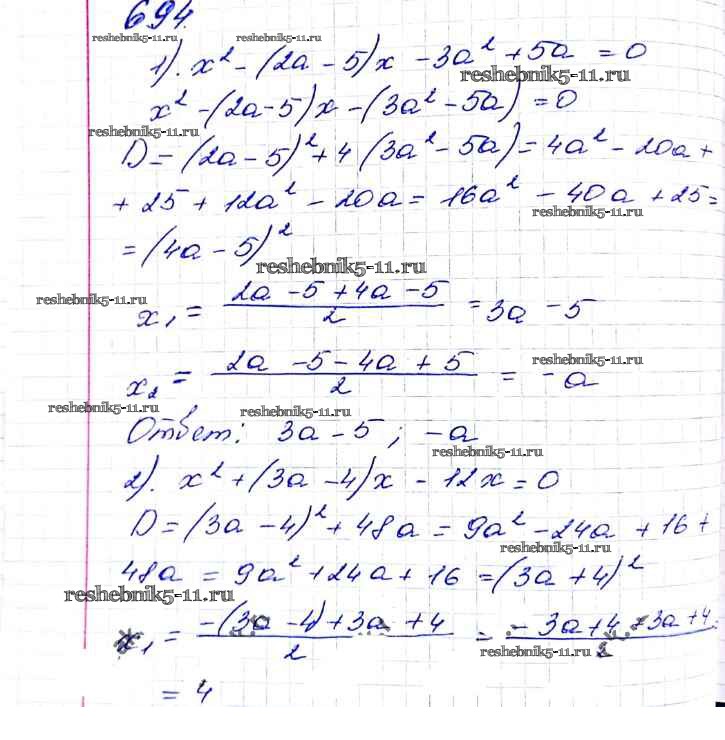 694.
reshebnik5-11.ru reshebnik5-11.ru
1). x² - (2a - 5)x - 3a² + 5a = 0
reshebnik5-11.ru
x² - (2a - 5)x - (3a² - 5a) = 0
reshebnik5-11.ru
D = (2a - 5)² + 4 (3a² - 5a) = 4a² - 20a +
+ 25 + 12a² - 20a = 16a² - 40a + 25 =
reshebnik5-11.ru
= (4a - 5)²
reshebnik5-11.ru
reshebnik5-11.ru
x₁ = (2a - 5 + 4a - 5)/2 = 3a - 5
reshebnik5-11.ru
x₂ = (2a - 5 - 4a + 5)/2 = -a
reshebnik5-11.ru reshebnik5-11.ru
Ответ: 3a - 5; -a
reshebnik5-11.ru
2). x² + (3a - 4)x - 12x = 0
D = (3a - 4)² + 48a = 9a² - 24a + 16 +
reshebnik5-11.ru
48a = 9a² + 24a + 16 = (3a + 4)²
reshebnik5-11.ru
x₁ = (-(3a - 4) + 3a + 4)/2 = (-3a + 4 + 3a + 4)/2 =
reshebnik5-11.ru
= 4